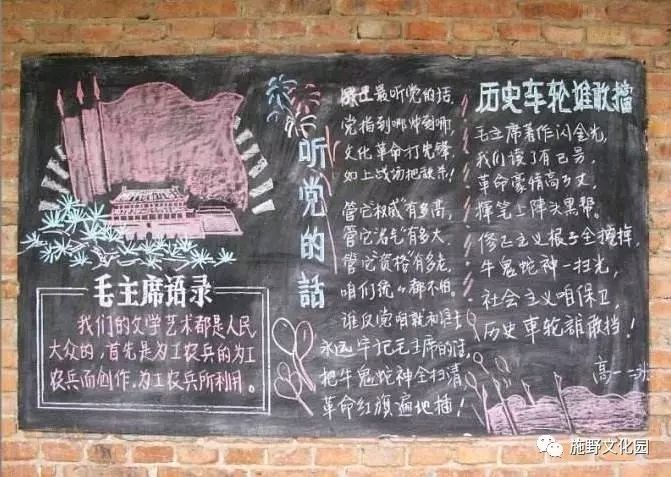 毛主席语录
我们的文学艺术都是人民
大众的，首先是为工农兵的为工
农兵而创作，为工农兵所利用。
听党的話
最听党的话，
党指到哪冲到哪，
文化革命打先锋，
如上战场把敌杀！
管它“权威”有多高，
管它“名气”有多大，
管它“资格”有多老，
咱们统统都不怕。
谁反党咱就和谁
永远牢记毛主席的话，
把牛鬼蛇神全扫清，
革命红旗遍地插！
历史车轮谁敢擋
毛主席著作闪金光，
我们读了有己另，
革命豪情高万丈，
挥笔上阵斗黑帮。
修正主义根子全挖掉，
牛鬼蛇神一扫光，
社会主义咱保卫，
历史车轮誰敢擋！
高一
施野文化园